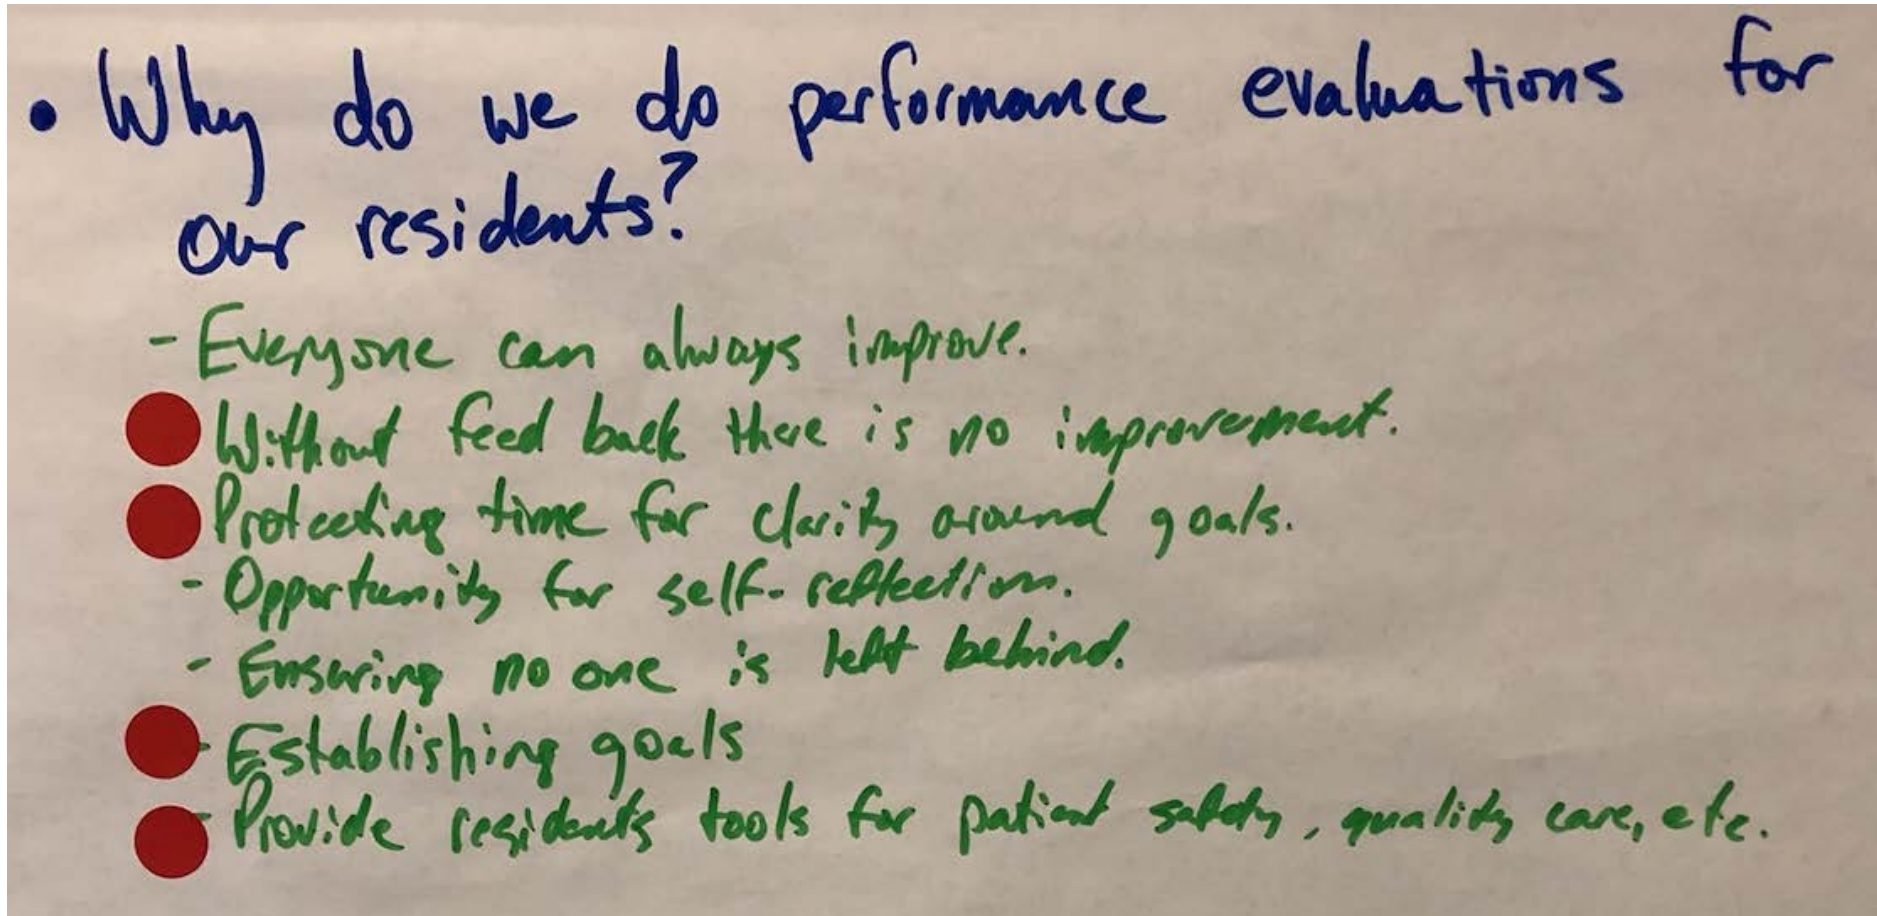 • Why do we do performance evaluations for
our residents?
- Everyone can always improve.
Without feed back there is no improvement.
Protecting time for clarity around goals.
- Opportunity for self-reflection.
- Ensuring no one is left behind.
- Establishing goals
- Provide residents tools for patient safety, quality care, etc.